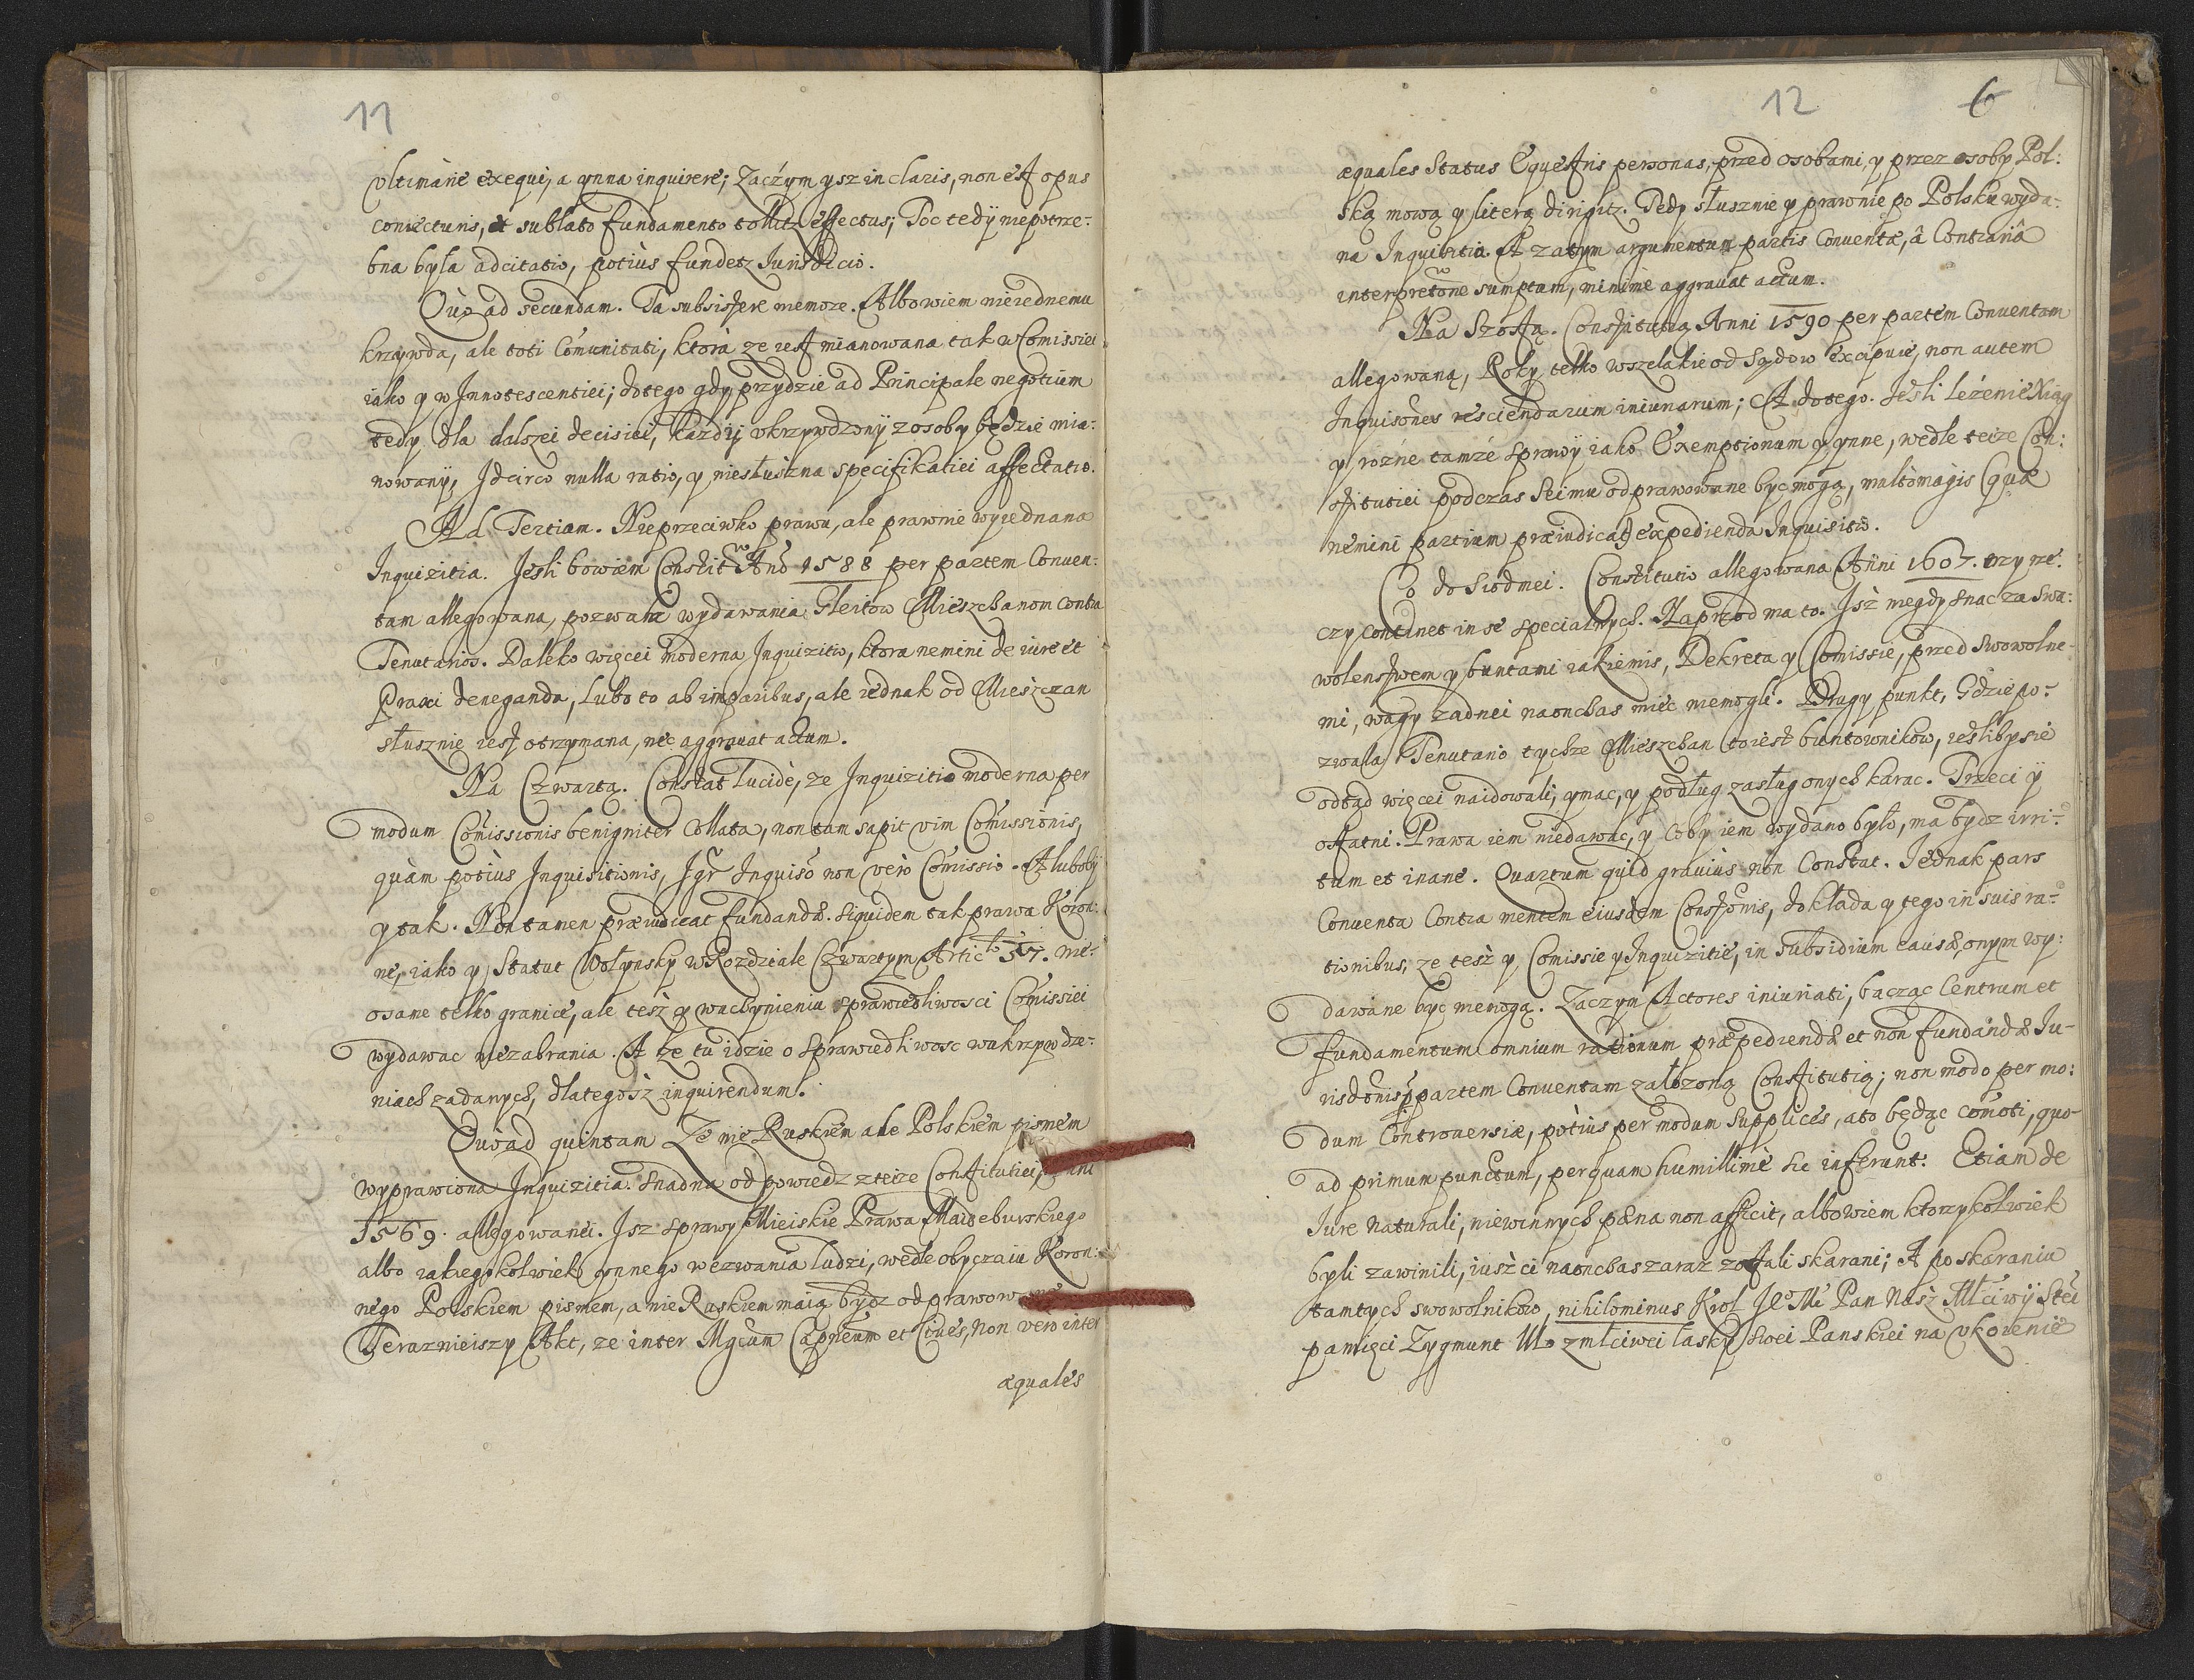 11
vltimarie exequi, a ynna inquirere; Zaczym ysz in claris, non est opus
coniecturis, et sublato fundamento tollitz effectus; Toc tedÿ niepotrze-
bna była adcitatio, potiùs fundetz Jurisdicio.
Quo ad secundam. Ta subsistere niemoże. Albowiem nieiednemu
krzywda, ale toti Comunitati, ktora że iest mianowana tak w Comissiei
iako y w Innotescentiei; dotego gdy przydzie ad Principale negotium
tedy dla dalszei decisiei, każdÿ vkrzywdzonÿ z osoby będzie mia-
nowanÿ, Jdcirco nulla ratio, y niesłuszna specifikatiei affectatio.
Ad Tertiam. Nieprzeciwko prawu, ale prawnie wyiednana
Inquizitia. Jesli bowiem Constit Anō 1588 per partem Conuen:
tam allegowana, pozwala wydawania Gleitow Mieszczanom contra
Tenutarios. Daleko więcei moderna Inquizitio, ktora nemini de iure et
Praxi deneganda, Lubo to ab imparibus, ale iednak od Mieszczan
słusznie iest otrzymana, nec aggrauat actum.
Na Czwartą. Constat lucidè, że Inquizitio moderna per
modum Comissionis benigniter Collata, non tam sapit vim Comissionis,
quàm potiùs Inquisitionis, Jgr Inquisō non verò Comissio. A luboby
y tak. Non tamen præiudicat fundandæ. Siquidem tak prawa Koron:
ne, iako y Statut Wołynsky w Rozdziale Czwartym Artic 57. nie-
osame telko granice, ale tesz y wuczynieniu sprawiedliwosci Comissiei
wydawac niezabrania. A że tu idzie o sprawiedliwosc wukrzywdze-
niach zadanych, dlategosz inquirendum.
Quo ad quintam Że nie Ruskiem ale Polskiem pismem
wyprawiona Inquizitia. Snadna odpowiedz z teize Constitutiei, Anni
1569. allegowanei. Jsz sprawy Mieiskie Prawa Maideburskiego
albo iakiegokolwiek ynnego wezwania ludzi, wedle obyczaiu Koron:
nego Polskiem pismem, a nie Ruskiem maią bydz odprawowane
Teraznieiszy Akt, że inter Mgcum Capneum et Ciues, Non vero inter
æquales
12 6
æquales Status Equestris personas, przed osobami, y przez osoby Pol:
ską mową y literą dirigitz. Tedy słusznie y prawnie po Polsku wyda-
na Inquisitia. A zatym argumentum partis Conuentæ, â Contrariâ
interpretōne sumptum, minimè aggrauat actum.
Na Szostą. Constitutią Anni 1590 per partem Conuentam
allegowaną, Roky telko wszelakie od Sądow excipuie, non autem
Inquisōnes resciendarum iniuriarum; A dotego. Jesli leżenie Xiąg
y rożne tamże sprawÿ iako Exemptionum y ynne, wedle teize Con:
stitutiei podczas Seimu odprawowane byc mogą, multomagis (quæ
nemini partium præiudicat) expedienda Inquisitio.
Co do Siodmei. Constitutio allegowana Anni 1607. trzy rze-
czy continet in se specialnych. Naprzod ma to. Jsz niegdy snac za swa:
wolenstwem y buntami iakiemis, Dekreta y Comissie, przed swowolne-
mi, wagy żadnei naonczas miec niemogli. Drugy punkt, Gdzie po-
zwala Tenutario tychże Mieszczan toiest buntownikow, ieslibysie
odtąd więcei naidowali, ymac, y podług zasług onych karac. Trzeci ÿ
ostatni. Prawa iem niedawac, y coby iem wydano było, ma bydz irri-
tum et inane. Quartum quid grauiùs non Constat. Jednak pars
Conuenta Contra mentem eiusdem Constōnis, dokłada y tego in suis ra-
tionibus, że tesz y Comissie y Inquizitie, in subsidium causæ, onym wy:
dawane byc niemogą. Zaczym Actores iniuriati, bacząc Centrum et
fundamentum omnium rationum præpediendæ et non fundandæ Ju-
risdōnis p partem Conuentam założoną Constitutią; non modo per mo:
dum Controuersiæ, potiùs per modum Supplices, ato będąc comoti, quo
ad primum punctum, perquam humillimè sic inferunt. Etiam de
Iure Naturali, niewinnych pæna non afficit, albowiem ktorzykolwiek
byli zawinili, iusz ci naonczas zaraz zostali skarani; A po skaraniu
tamtych swowolnikow, nihilominus Krol Jº Mć Pan Nasz Młciwÿ Stei
pamięci Zygmunt IIIo z młciwei lasky swei Panskiei na vkoienie